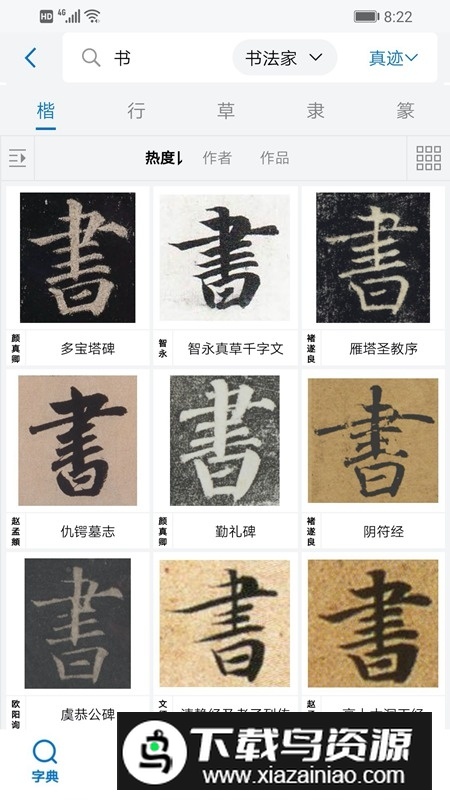 HD 4G 8:22
书 书法家 真迹
楷 行 草 隶 篆
热度 作者 作品
書 書 書
颜真卿 多宝塔碑 智永 智永真草千字文 褚遂良 雁塔圣教序
書 書 書
赵孟頫 仇锷墓志 颜真卿 勤礼碑 褚遂良 阴符经
書 書 書
欧阳询 虞恭公碑
字典
下载鸟资源
www.xiazainiao.com